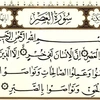 سورة العصر
بسم الله الرحمن الرحيم
والعصر إن الإنسان لفي خسر إلا الذين
ءامنوا وعملوا الصالحات وتواصوا
بالحق وتواصوا بالصبر